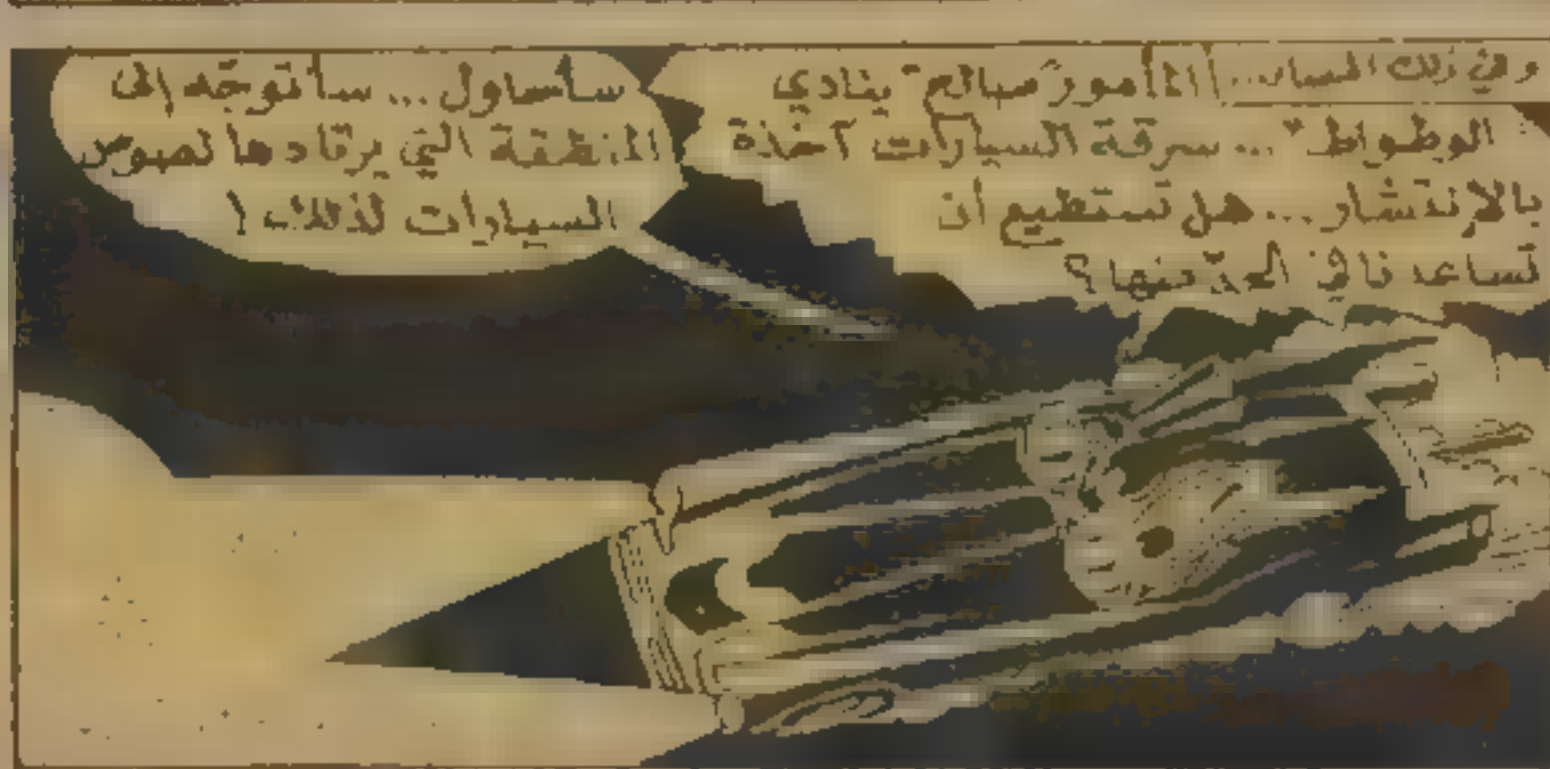 وفي ذلك المساء...
المأمور "صالح" ينادي
"الوطواط" ... سرقة السيارات آخذة
بالإنتشار... هل تستطيع أن
تساعدنا في الحدّ منها؟
سأحاول ... سأتوجّه إلى
المنطقة التي يرتادها لصوص
السيارات لذلك !